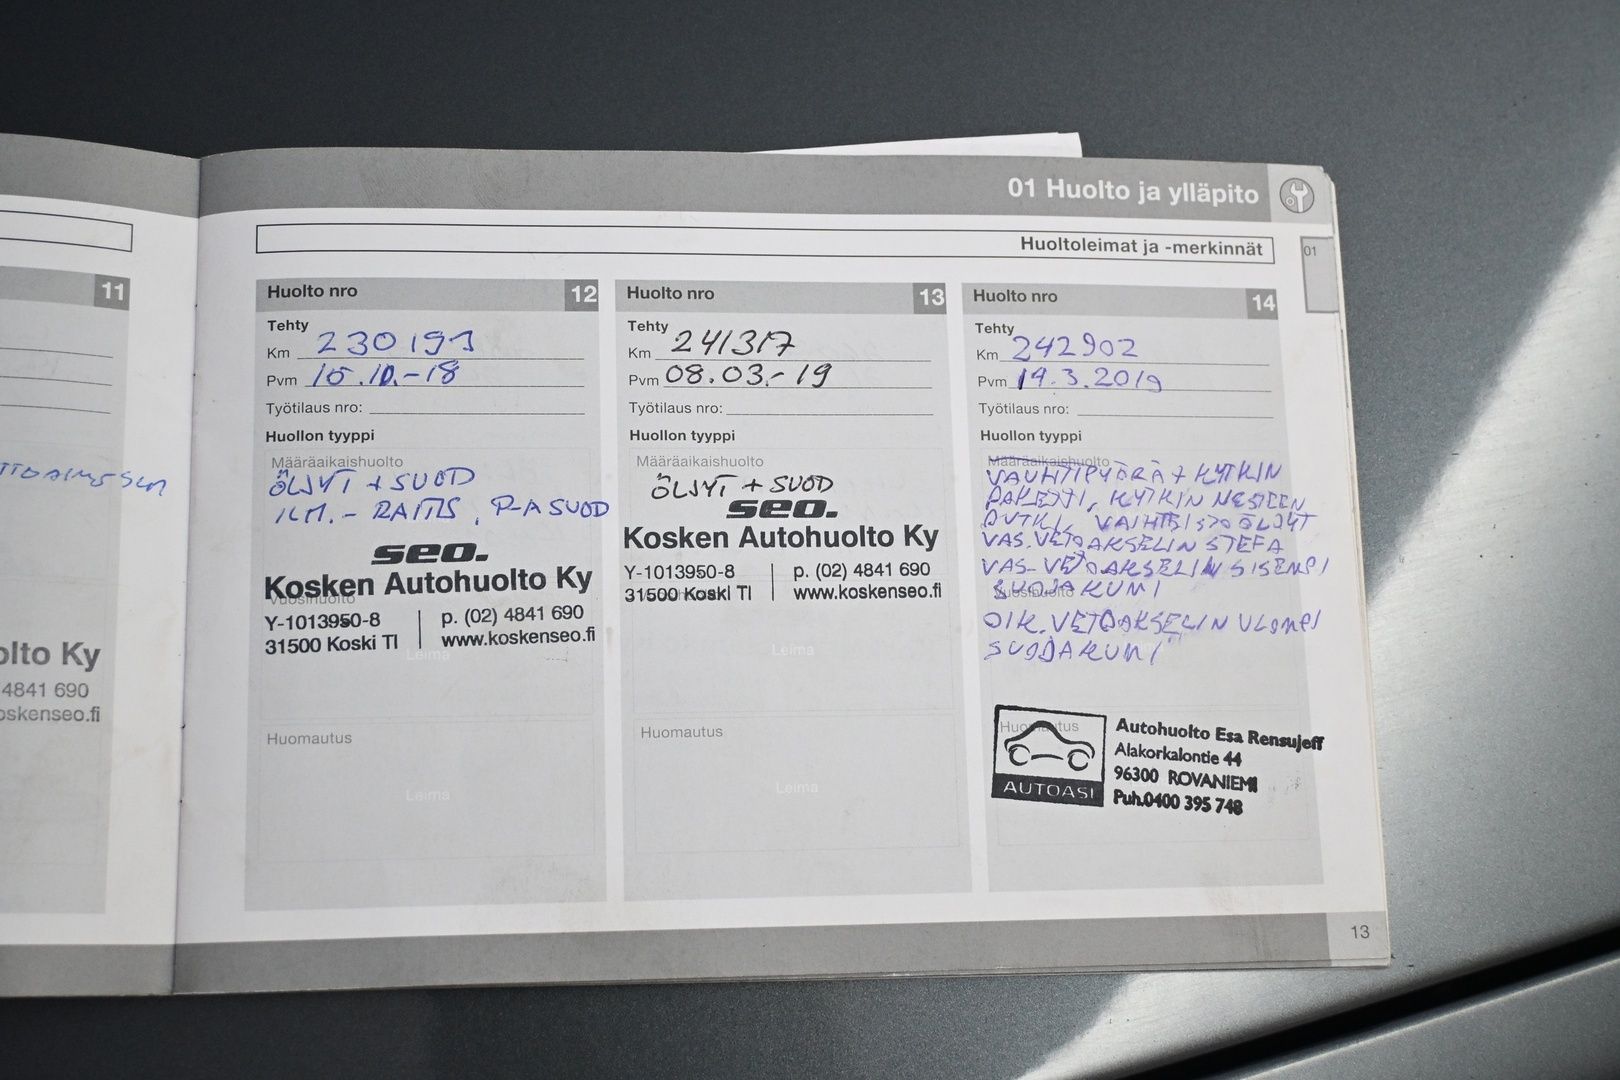 01 Huolto ja ylläpito
01
Huoltoleimat ja -merkinnät
11
olto Ky
4841 690
oskenseo.fi
Huolto nro 12
Tehty
Km 230191
Pvm 15.10.-18
Työtilaus nro:
Huollon tyyppi
Määräaikaishuolto
ÖLJYT + SUOD
ILM.- RAITIS, P-A SUOD
seo.
Kosken Autohuolto Ky
Vuosihuolto
Y-1013950-8 p. (02) 4841 690
31500 Koski Tl www.koskenseo.fi
Leima
Huomautus
Leima
Huolto nro 13
Tehty
Km 241317
Pvm 08.03.-19
Työtilaus nro:
Huollon tyyppi
Määräaikaishuolto
ÖLJYT + SUOD
seo.
Kosken Autohuolto Ky
Y-1013950-8 p. (02) 4841 690
31500 Koski Tl www.koskenseo.fi
Leima
Huomautus
Leima
Huolto nro 14
Tehty
Km 242902
Pvm 19.3.2019
Työtilaus nro:
Huollon tyyppi
Määräaikaishuolto
VAUHTIPYÖRÄ + KYTKIN
PAKETTI, KYTKIN NESTEEN
PUTKI, VAIHTEISTOÖLJYT
VAS.VETOAKSELIN STEFA
VAS-VETOAKSELIN SISEMPI
SUOJAKUMI
Vuosihuolto
OIK.VETOAKSELIN ULOMPI
SUOJAKUMI
Huomautus
AUTOASI
Autohuolto Esa Rensujeff
Alakorkalontie 44
96300 ROVANIEMI
Puh.0400 395 748
13